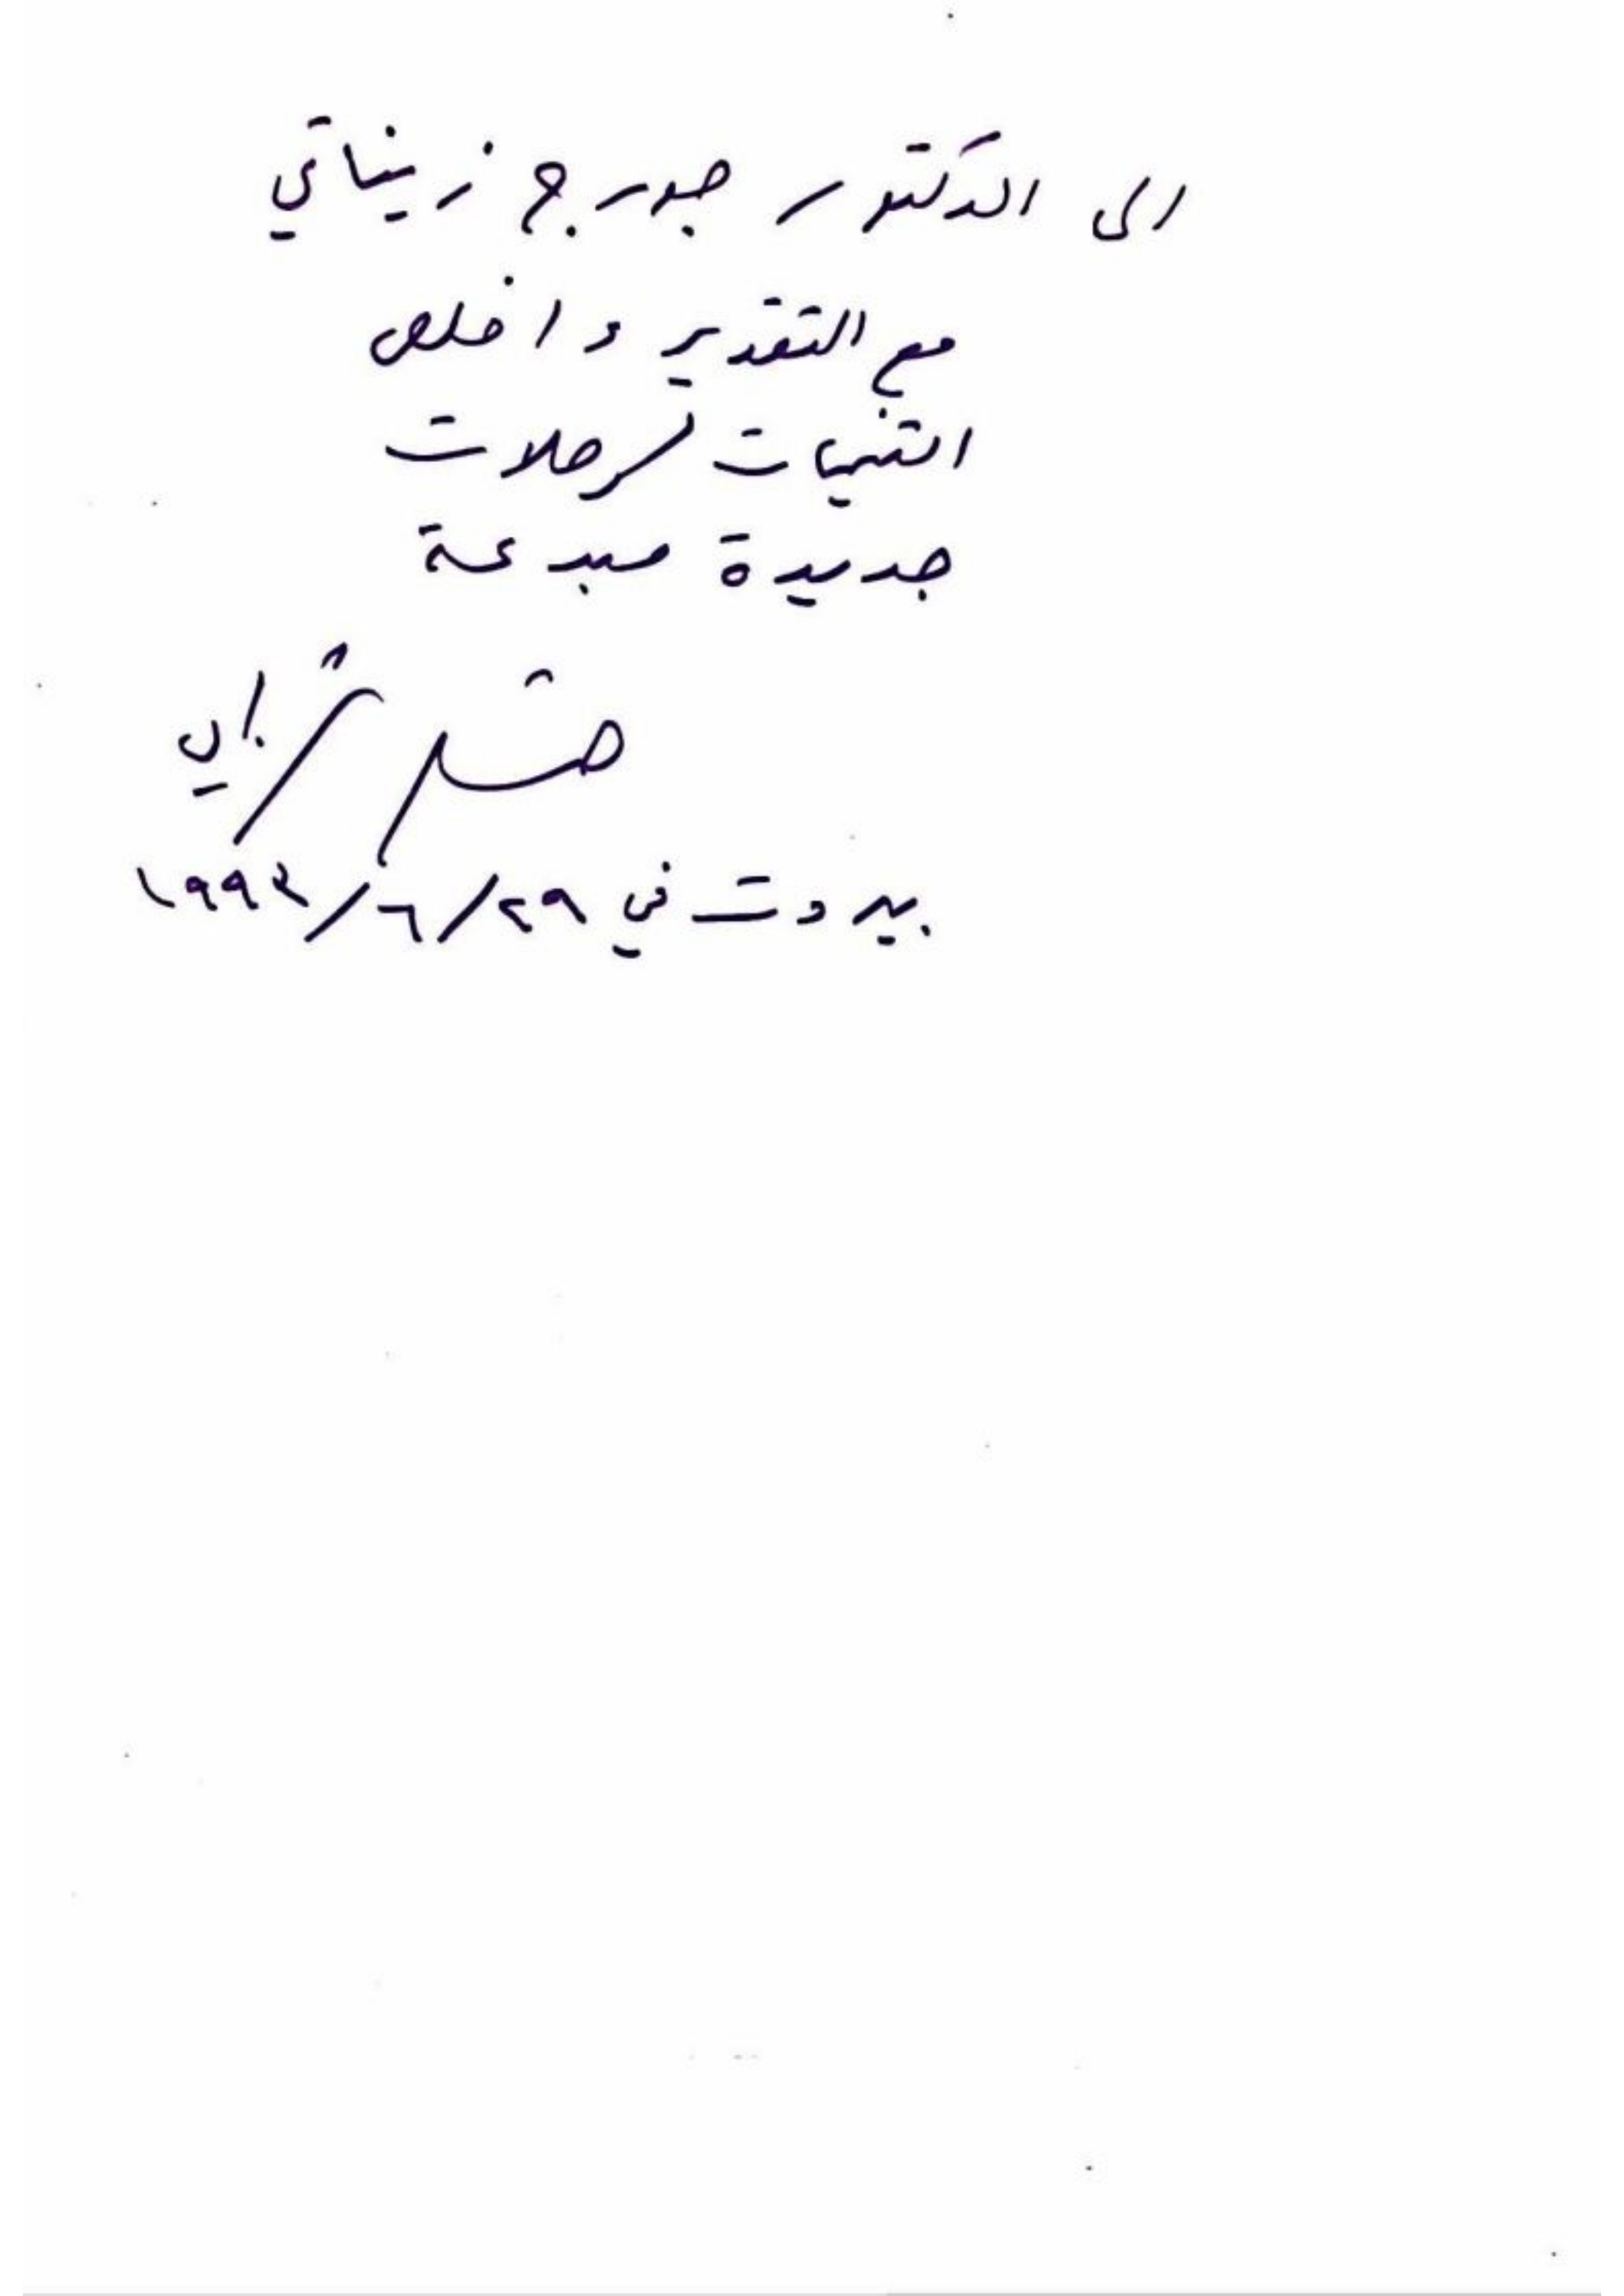 الى الدكتور جورج زيناتي
مع التقدير واخلص
التمنيات لرحلات
جديدة مبدعة
هشام شرابي
بيروت في ٢٩/٦/١٩٩٣